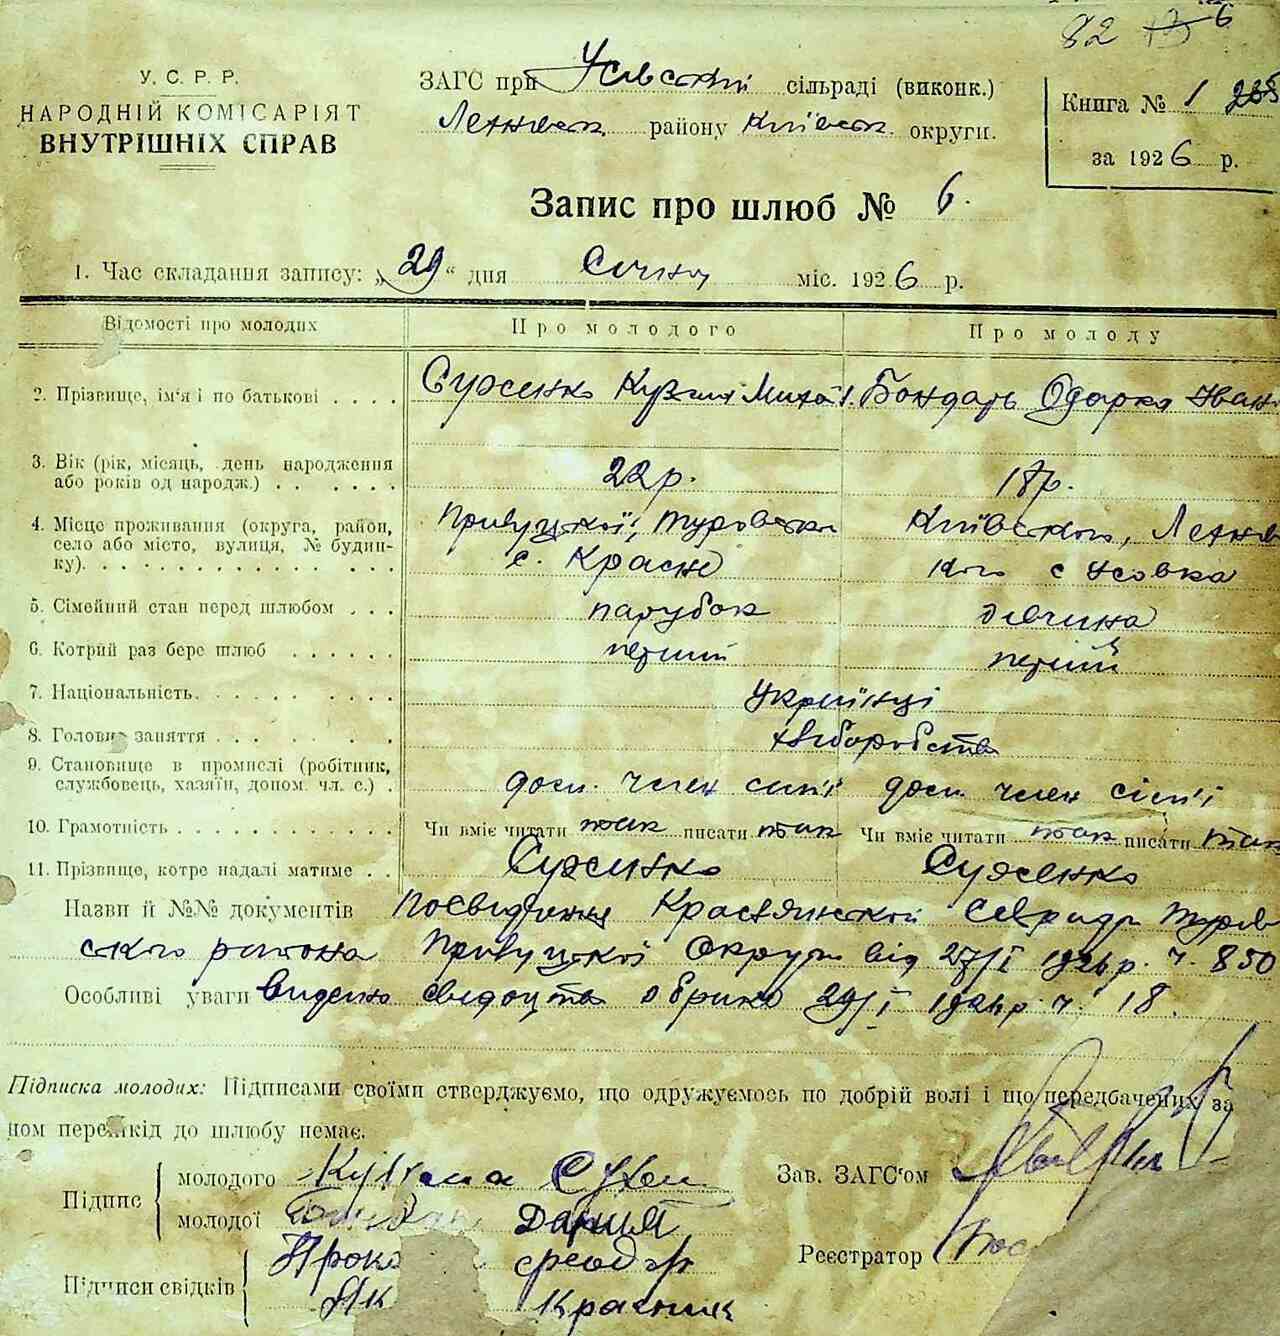 82 13 6
У. С. Р. Р.
НАРОДНІЙ КОМІСАРІЯТ
ВНУТРІШНІХ СПРАВ
ЗАГС при Усівській сільраді (виконк.)
району Київськ. округи.
Книга № 1
за 1926 р.
Запис про шлюб № 6.
1. Час складання запису: „29“ дня Січня міс. 1926 р.
Відомості про молодих Про молодого Про молоду
2. Прізвище, ім'я і по батькові . . . . Сухенко Кузьма Миха Бондарь Одарка Іван
3. Вік (рік, місяць, день народження
або років од народж.) . . . . . . 22 р. 18 р.
4. Місце проживання (округа, район, Прилуцкої, Туровськ Київського,
село або місто, вулиця, № будин-
ку). . . . . . . . . . . . . . . . с. Красне кого с Усовка
5. Сімейний стан перед шлюбом . . . парубок дівчина
6. Котрий раз бере шлюб . . . . . . перший перший
7. Національність. . . . . . . . . Українці
8. Головне заняття . . . . . . . . хліборобство
9. Становище в промислі (робітник,
службовець, хазяїн, допом. чл. с.) . доп. член сим'ї доп. член сім'ї
10. Грамотність . . . . . . . . . . . Чи вміє читати так писати так Чи вміє читати так писати так
11. Прізвище, котре надалі матиме . . Сухенко Сухенко
Назви й №№ документів Посвидчення Краснянской Сільради Турів
ського района Прилуцкої Округи від 27/I 1926 р. ч. 850
Особливі уваги Видено 29/I 1926 р. ч. 18.
Підписка молодих: Підписами своїми стверджуємо, що одружуємось по добрій волі і що передбачених за
ном перешкід до шлюбу немає.
Підпис
молодого Кузьма Сухен
молодої Дария
Зав. ЗАГС'ом
Реєстратор
Підписи свідків
Проко
Як Красник